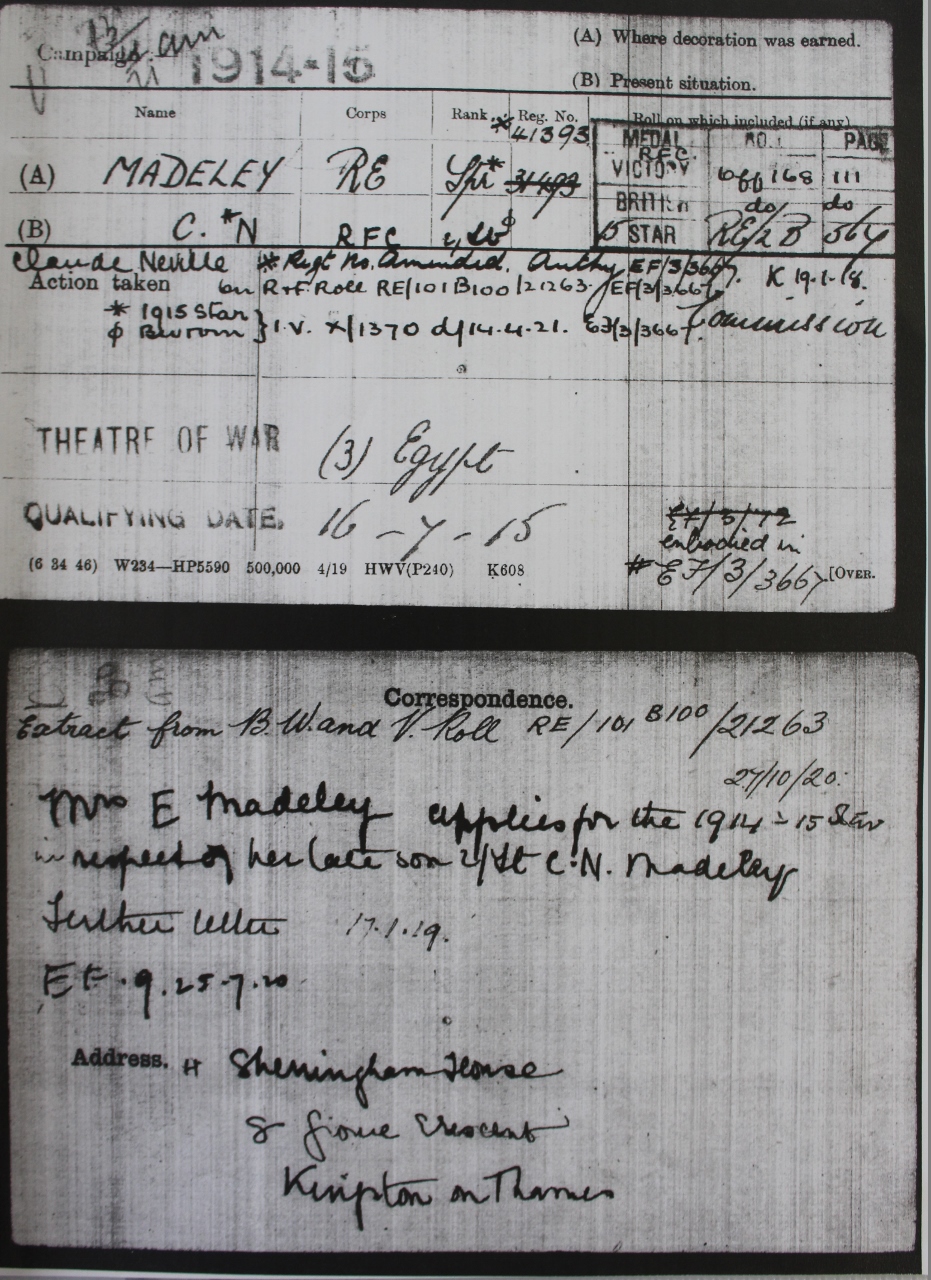 (A) Where decoration was earned.
Campaign:— 1914-15
(B) Present situation.
Name Corps Rank Reg. No. Roll on which included (if any)
* 41393
MEDAL NO. PAGE
R.F.C.
(A) MADELEY RE Spr* 31493
VICTORY Off 168 111
BRITISH do do
(B) C. *N RFC 2/Lt ϕ
15 STAR RE/2B 564
Claude Neville * Regt No. Amended. Authy EF/3/3667. K 19.1.18.
Action taken on R+F Roll RE/101B100/21263. EF/3/3667.
* 1915 Star
ϕ BW } I.V. /1370 d/14.4.21. EF/3/3667 Commission
THEATRE OF WAR (3) Egypt
QUALIFYING DATE. 16 - 7 - 15
EF/3/72
embodied in
(6 34 46) W234—HP5590 500,000 4/19 HWV(P240) K608
# EF/3/3667. [OVER.
Correspondence.
Extract from B.W. and V. Roll RE/101 B100/21263
27/10/20.
Mrs E Madeley applies for the 1914-15 Star
in respect of her late son 2/Lt C.N. Madeley
Further letter 17.1.19.
EF.9.25-7-20
Address. Sherringham House
Crescent
on Thames